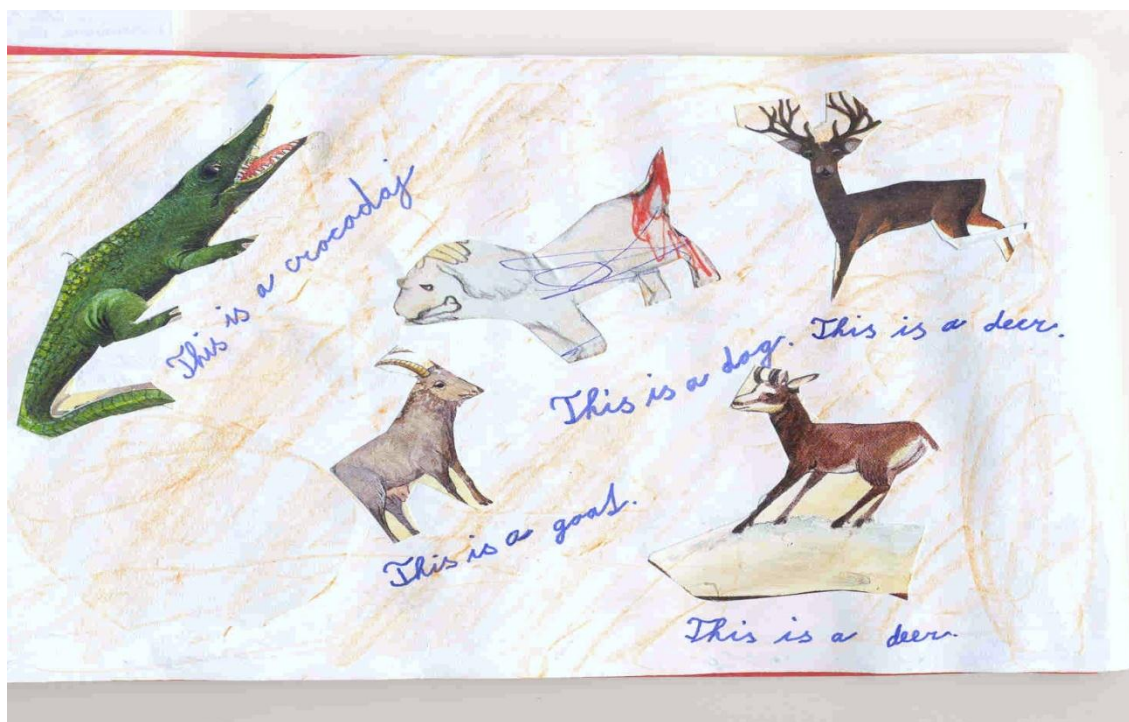 This is a crocadaj
This is a dog.
This is a deer.
This is a goat.
This is a deer.